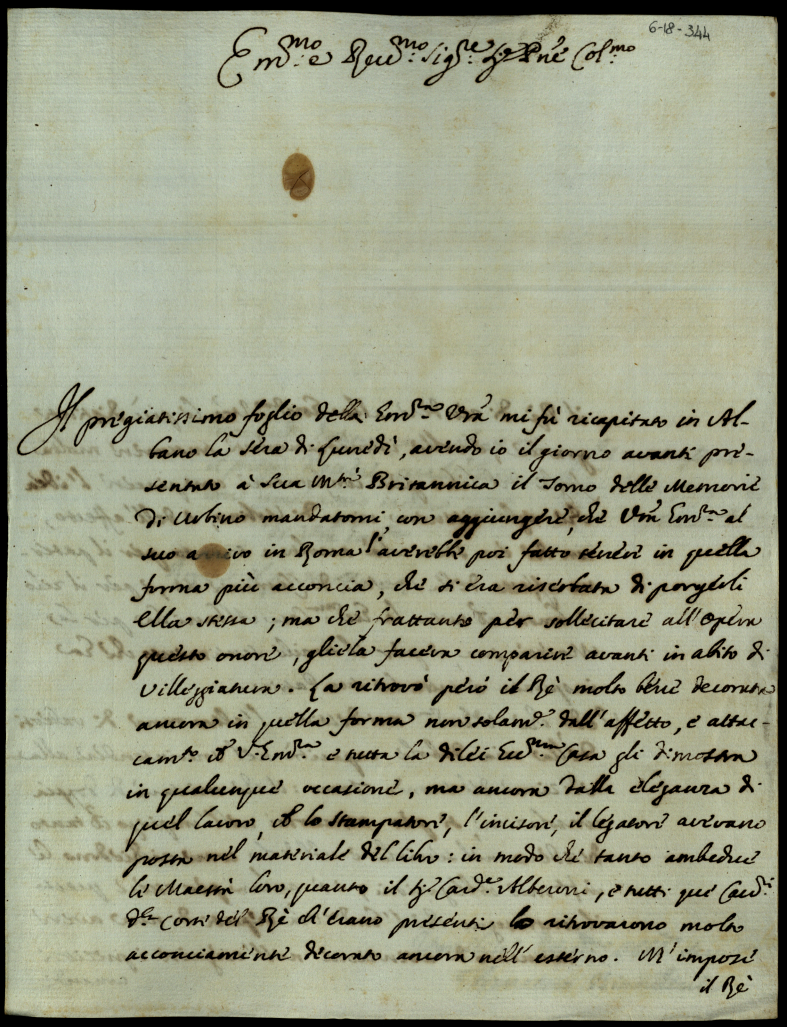 6-18-344
Em.mo e Rev.mo Sig.re Sig.re Pne Col.mo
Il pregiatissimo foglio della Em.za Vra mi fù ricapitato in Al-
bano la sera di Lunedì, avendo io il giorno avanti pre-
sentato à Sua M.tà Britannica il Tomo delle Memorie
di Urbino mandatomi, con aggiungere, che Vra Em.za al
suo arrivo in Roma l'averebbe poi fatto tenere in quella
forma più acconcia, che si era riserbata di porgerli
Ella stessa; ma che frattanto per sollecitare all'Opera
questo onore, gliela faceva comparire avanti in abito di
villeggiatura. La ritrovò però il Rè molto bene decorata
ancora in quella forma non solam.e dall'affetto, e attac-
cam.to che V. Em.za e tutta la di lei Ecc.ma Casa gli dimostra
in qualunque occasione, ma ancora dalla eleganza di
quel lavoro, che lo stampatore, l'incisore, il legatore avevano
posta nel materiale del libro: in modo che tanto ambedue
le Maestà loro, quanto il Sig.r Card.le Alberoni, e tutti que' Cav.ri
d.la Corte del Rè ch'erano presenti lo ritrovarono molto
acconciamente decorato ancora nell'esterno. M'impose
il Rè